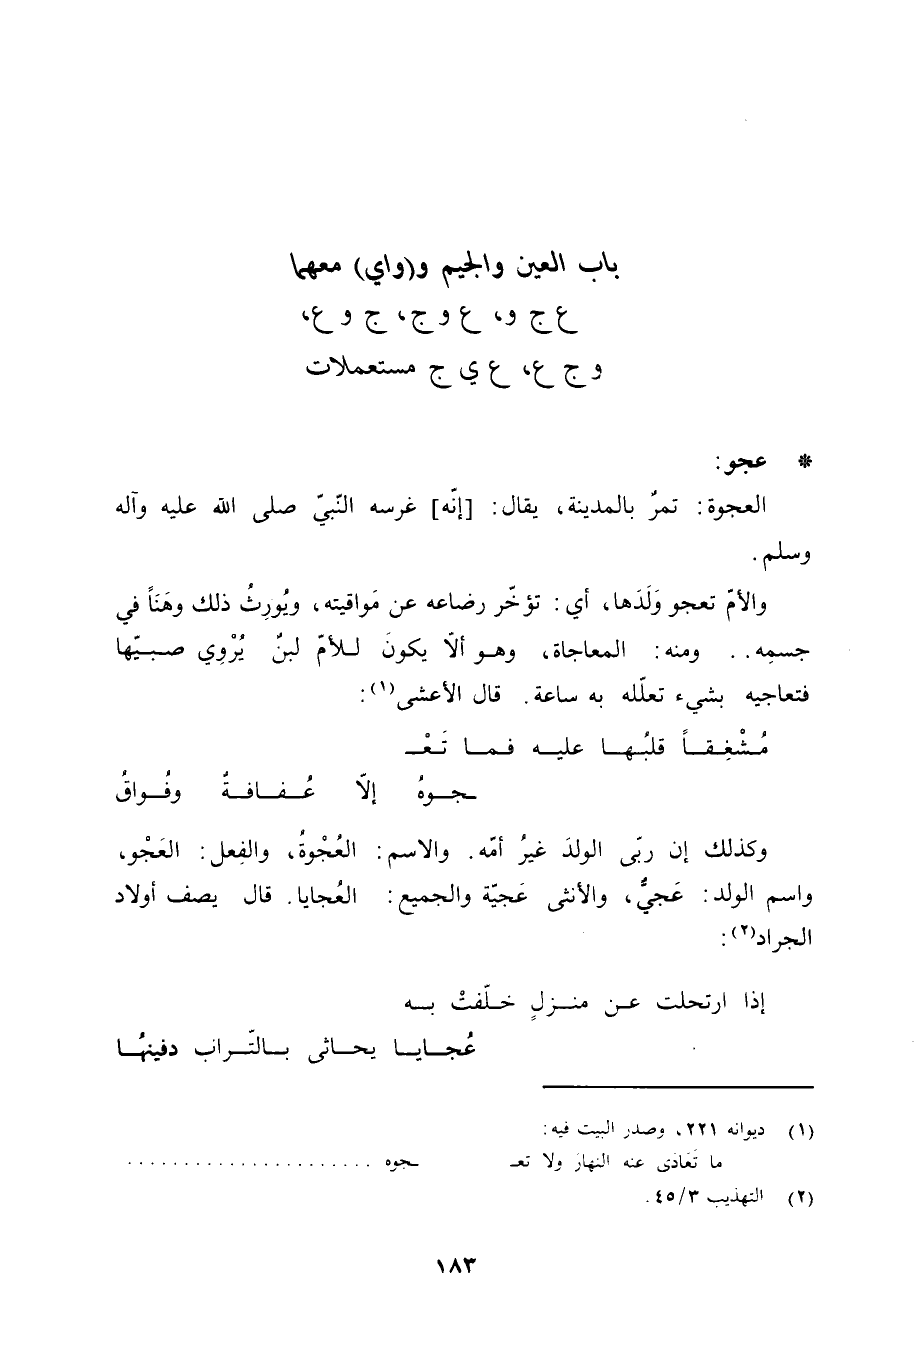 باب العين والجيم و(واي) معهما
ع ج و، ع و ج، ج و ع،
و ج ع، ع ي ج مستعملات
* عجو:
العجوة: تمرٌ بالمدينة، يقال: [إنّه] غرسه النّبيّ صلى الله عليه وآله
وسلم.
والأمّ تعجو وَلَدَها، أي: تؤخّر رضاعه عن مَواقيته، ويُورِثُ ذلك وهَناً في
جسمِه.. ومنه: المعاجاة، وهو ألاّ يكونَ للأمّ لبنٌ يُرْوِي صبيّها
فتعاجيه بشيء تعلّله به ساعة. قال الأعشى(١):
مُشْفِقاً قلبُها عليه فما تَعْـ
ـجوهُ إلاّ عُفافةٌ وفُواقُ
وكذلك إن ربّى الولدَ غيرُ أمّه. والاسم: العُجْوةُ، والفِعل: العَجْو،
واسم الولد: عَجيٌّ، والأنثى عَجيّة والجميع: العُجايا. قال يصف أولاد
الجراد(٢):
إذا ارتحلت عن منزلٍ خلّفتْ به
عُجايا يحاثى بالتّراب دفينُها
(١) ديوانه ٢٢١، وصدر البيت فيه:
ما تَعَادَى عنه النهارَ ولا تعـ ـجوه ......................
(٢) التهذيب ٤٥/٣.
١٨٣